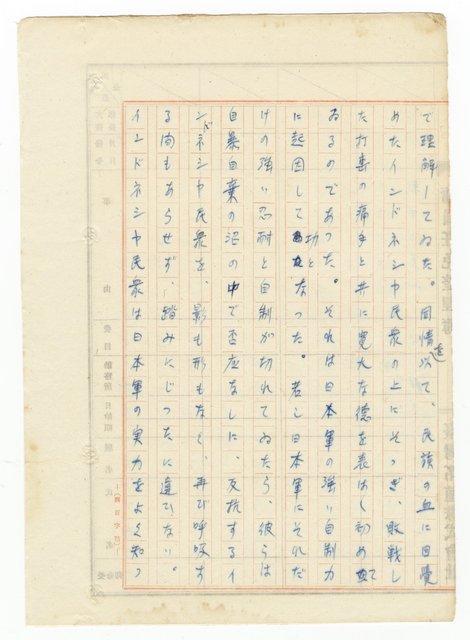 で理解してゐた。同情を以て、民族の血に目覺
めたインドネシヤ民衆の上にそゝぎ、敗戦し
た打春の痛手と共に寛大な德を表はし初めて
ゐるのであった。それは日本軍の強い自制力
に起因して功となった。若し日本軍にそれだ
けの強い忍耐と自制が切れてゐたら、彼らは
自暴自棄の沼の中で否應なしに、反抗するイ
ンドネシヤ民衆を、影も形もなく、再び呼吸す
る間もあらせず、踏みにじったに違ひない。
インドネシヤ民衆は日本軍の実力をよく知っ